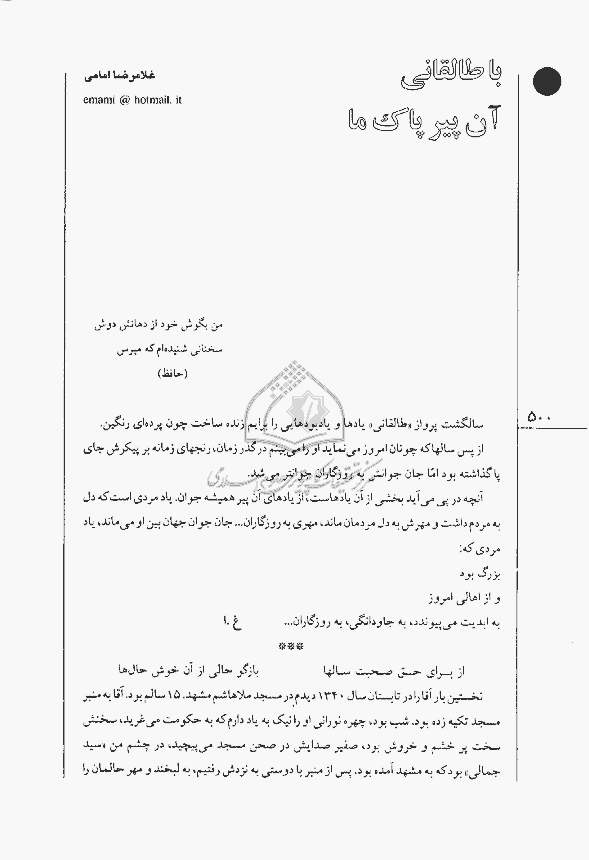 با طالقانی
آن پیر پاک ما
غلامرضا امامی
emami @ hotmail. it
من بگوش خود از دهانش دوش
سخنانی شنیده‌ام که مپرس
(حافظ)
۵۰۰
سالگشت پرواز «طالقانی» یادها و یادبودهایی را برایم زنده ساخت چون پرده‌ای رنگین.
از پس سالها که چونان امروز می‌نماید او را می‌بینم در گذر زمان، رنجهای زمانه بر پیکرش جای
پا گذاشته بود امّا جان جوانش به روزگاران جوانتر می‌شد.
آنچه در پی می‌آید بخشی از آن یادهاست، از یادهای آن پیر همیشه جوان. یاد مردی است که دل
به مردم داشت و مهرش به دل مردمان ماند، مهری به روزگاران... جان جوان جهان بین او می‌ماند، یاد
مردی که:
بزرگ بود
و از اهالی امروز
به ابدیت می‌پیوندد، به جاودانگی، به روزگاران... غ .ا
***
از بـرای حـق صـحبت سـالها بازگو حالی از آن خوش حال‌ها
نخستین بار آقا را در تابستان سال ۱۳۴۰ دیدم در مسجد ملاهاشم مشهد. ۱۵ سالم بود. آقا به منبر
مسجد تکیه زده بود. شب بود، چهره نورانی او را نیک به یاد دارم که به حکومت می‌غرید، سخنش
سخت پر خشم و خروش بود، صفیر صدایش در صحن مسجد می‌پیچید، در چشم من «سید
جمالی» بود که به مشهد آمده بود. پس از منبر با دوستی به نزدش رفتیم، به لبخند و مهر حالمان را